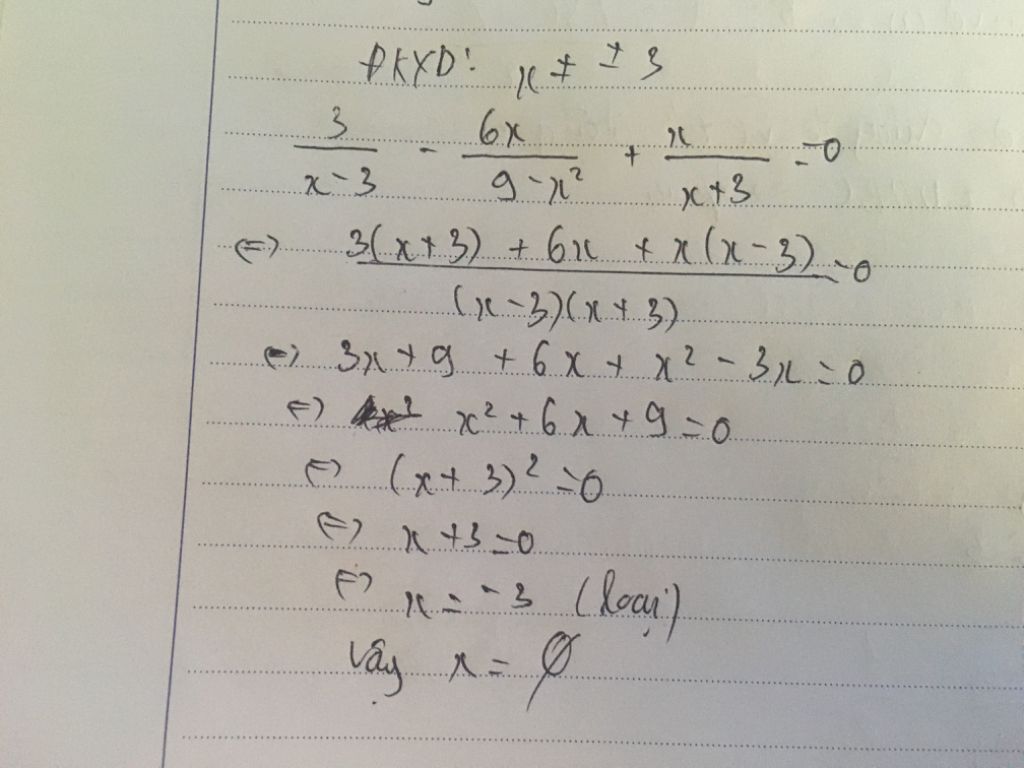 ĐKXD: x ≠ ± 3
3/(x-3) - 6x/(9-x²) + x/(x+3) = 0
<=> (3(x+3) + 6x + x(x-3))/((x-3)(x+3)) = 0
<=> 3x + 9 + 6x + x² - 3x = 0
<=> x² + 6x + 9 = 0
<=> (x + 3)² = 0
<=> x + 3 = 0
<=> x = -3 (loại)
Vậy x = ∅